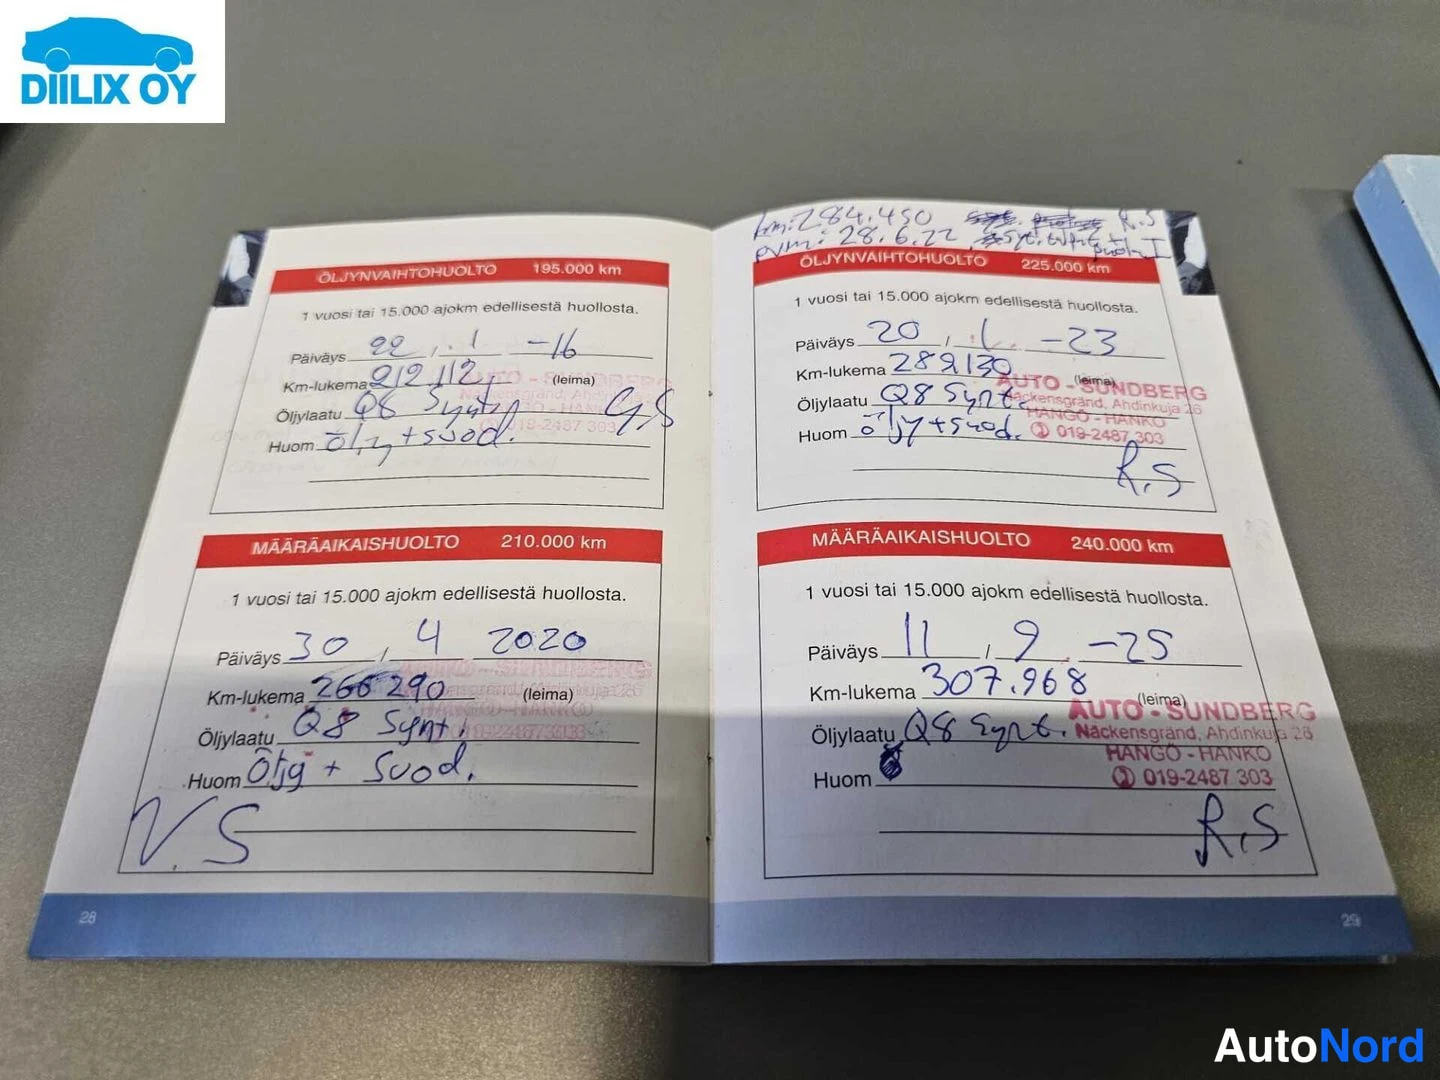 DIILIX OY
ÖLJYNVAIHTOHUOLTO 195.000 km
1 vuosi tai 15.000 ajokm edellisestä huollosta.
Päiväys 22 . 1 -16
Km-lukema 212 112 (leima)
Öljylaatu Q8 Synt.
Huom öljy + suod.
G.S
AUTO - SUNDBERG
Näckensgränd, Ahdinkuja
HANGÖ - HANKO
019-2487 303
MÄÄRÄAIKAISHUOLTO 210.000 km
1 vuosi tai 15.000 ajokm edellisestä huollosta.
Päiväys 30 / 4 2020
Km-lukema 266 290 (leima)
Öljylaatu Q8 Synt.
Huom Öljy + Suod.
V.S
28
km: 284.450 R.S
pvm: 28.6.22
ÖLJYNVAIHTOHUOLTO 225.000 km
1 vuosi tai 15.000 ajokm edellisestä huollosta.
Päiväys 20 / 1 -23
Km-lukema 289130 (leima)
Öljylaatu Q8 Synt.
Huom öljy + suod.
AUTO - SUNDBERG
Näckensgränd, Ahdinkuja 26
HANGÖ - HANKO
019-2487 303
R.S
MÄÄRÄAIKAISHUOLTO 240.000 km
1 vuosi tai 15.000 ajokm edellisestä huollosta.
Päiväys 11 / 9 -25
Km-lukema 307.968 (leima)
Öljylaatu Q8 Synt.
Huom
AUTO - SUNDBERG
Näckensgränd, Ahdinkuja 26
HANGÖ - HANKO
019-2487 303
R.S
29
AutoNord